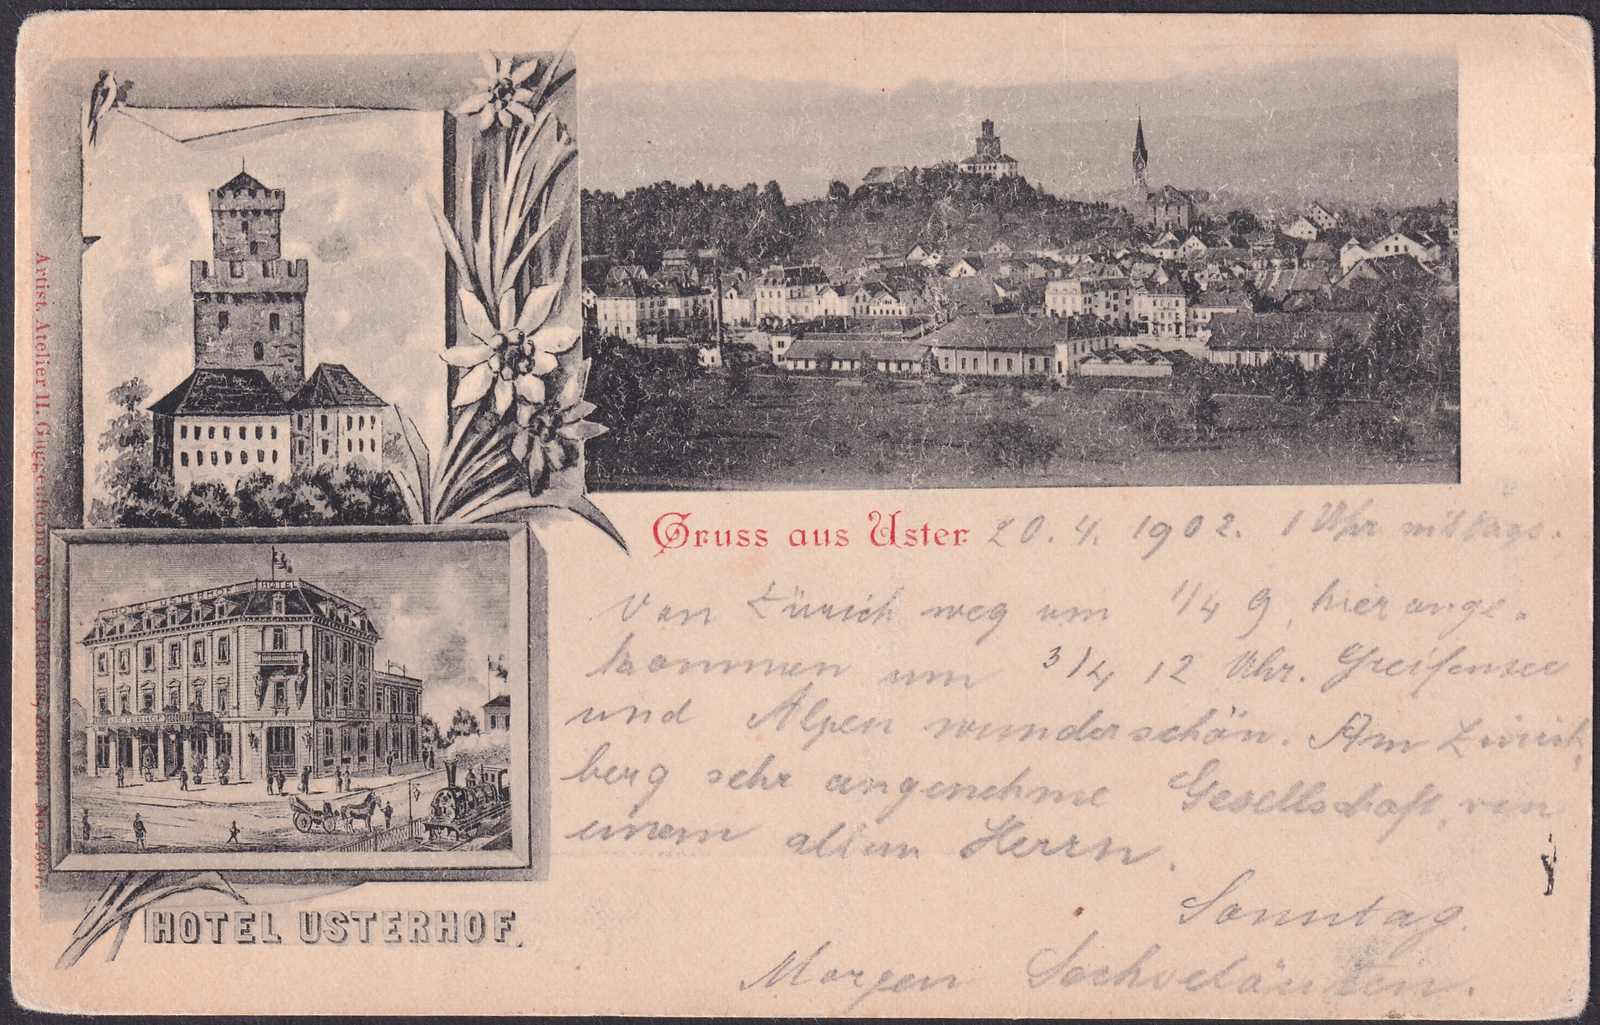 Gruss aus Uster 20. 4. 1902. 1 Uhr mittags.
Von Zürich weg um 1/4 9, hier ange-
kommen um 3/4 12 Uhr. Greifensee
und Alpen wunderschön. Am Zürich
berg sehr angenehme Gesellschaft, von
einem alten Herrn.
Sonntag.
Morgen Sechseläuten.
HOTEL USTERHOF
HOTEL
USTERHOF
HOTEL USTERHOF.
Artist. Atelier H. Guggenheim & Co., Editeurs, Zürich. No.